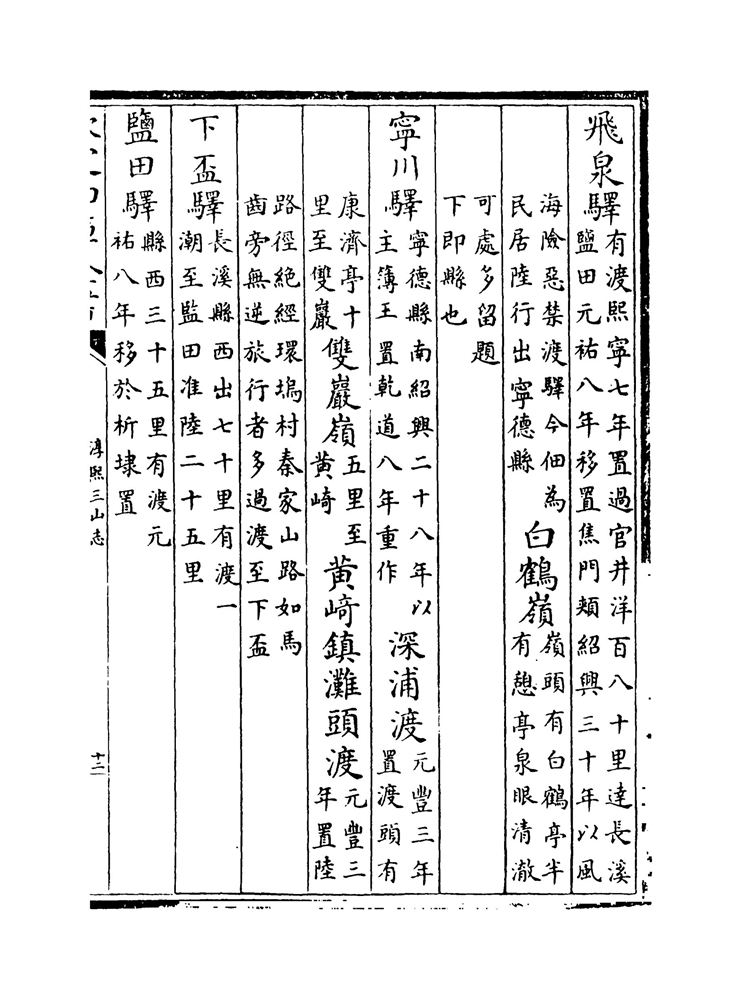 飛泉驛
有渡熙寧七年置過官井洋百八十里達長溪
鹽田元祐八年移置焦門頰紹興三十年以風
海險惡禁渡驛今佃為
民居陸行出寧德縣
白鶴嶺
嶺頭有白鶴亭半
有憩亭泉眼清澈
可處多留題
下即縣也
寧川驛
寧德縣南紹興二十八年以
主簿王置乾道八年重作
深浦渡
元豐三年
置渡頭有
康濟亭十
里至雙巖
雙巖嶺
五里至
黃崎
黃崎鎮灘頭渡
元豐三
年置陸
路徑絕經環塢村秦家山路如馬
齒旁無逆旅行者多過渡至下盃
下盃驛
長溪縣西出七十里有渡一
潮至監田准陸二十五里
鹽田驛
縣西三十五里有渡元
祐八年移於析埭置
淳熙三山志
十二